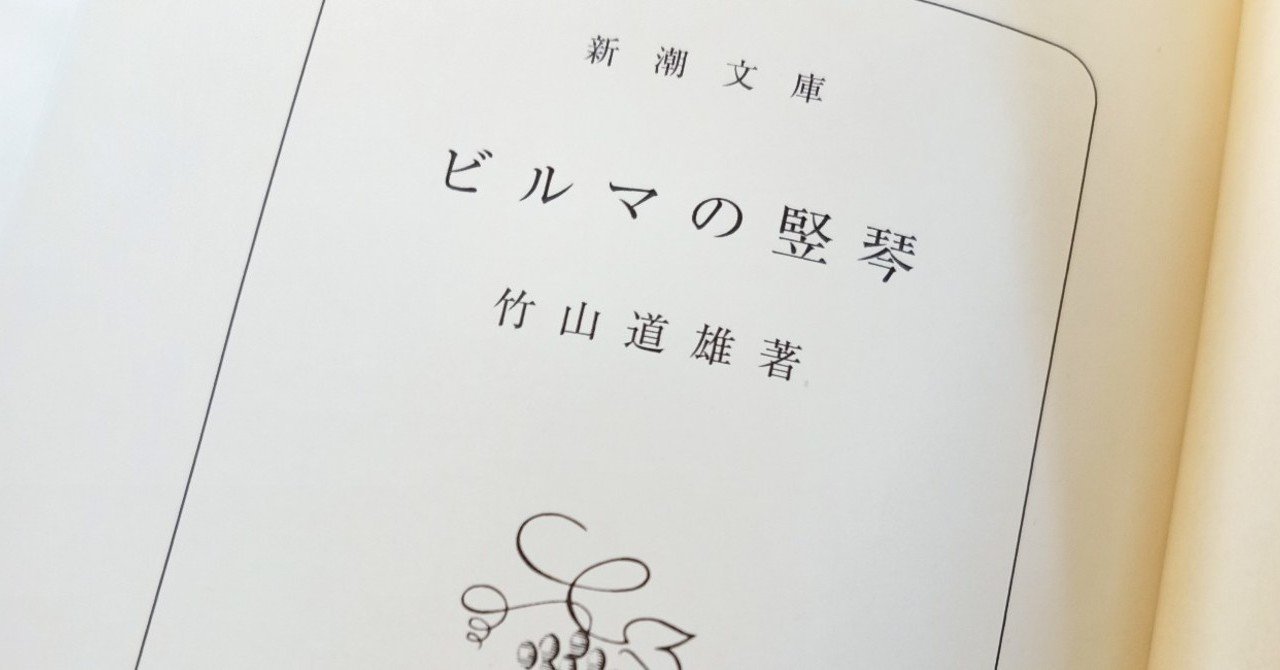 新潮文庫
ビルマの竪琴
竹山道雄著